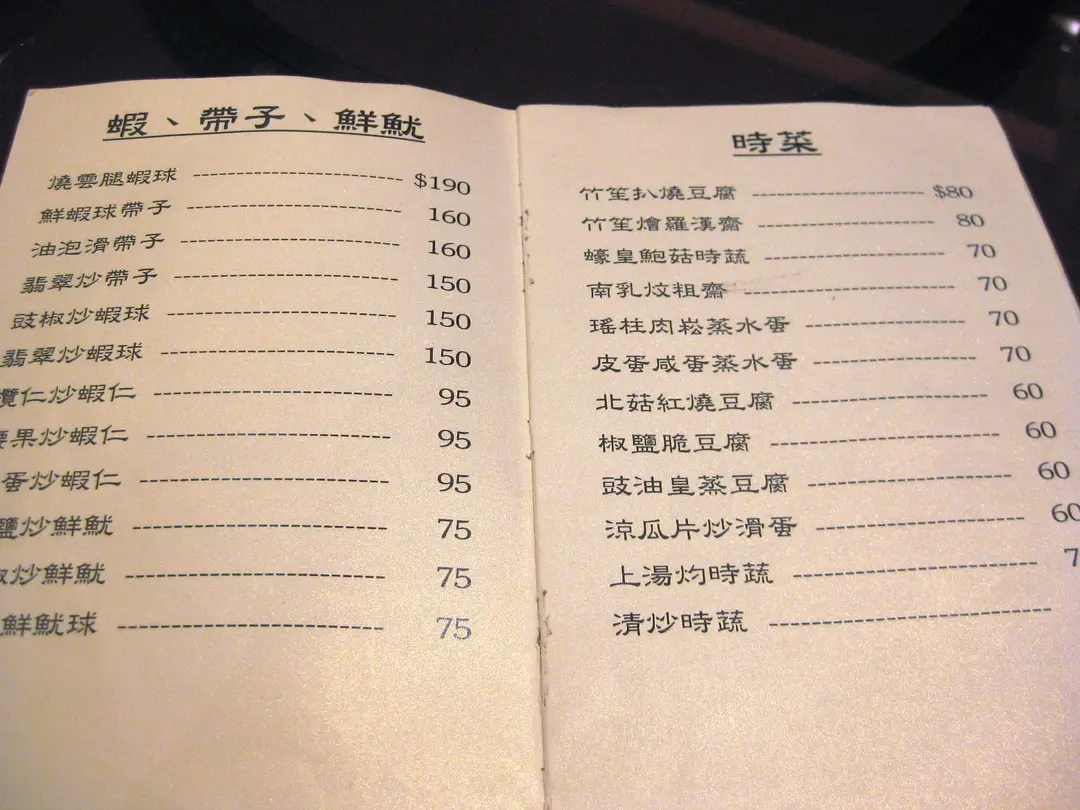 蝦、帶子、鮮魷
燒雲腿蝦球 $190
鮮蝦球帶子 160
油泡滑帶子 160
翡翠炒帶子 150
豉椒炒蝦球 150
翡翠炒蝦球 150
欖仁炒蝦仁 95
果炒蝦仁 95
蛋炒蝦仁 95
鹽炒鮮魷 75
炒鮮魷 75
鮮魷球 75
時菜
竹笙扒燒豆腐 $80
竹笙燴羅漢齋 80
蠔皇鮑菇時蔬 70
南乳炆粗齋 70
瑤柱肉崧蒸水蛋 70
皮蛋咸蛋蒸水蛋 70
北菇紅燒豆腐 60
椒鹽脆豆腐 60
豉油皇蒸豆腐 60
涼瓜片炒滑蛋 60
上湯灼時蔬
清炒時蔬